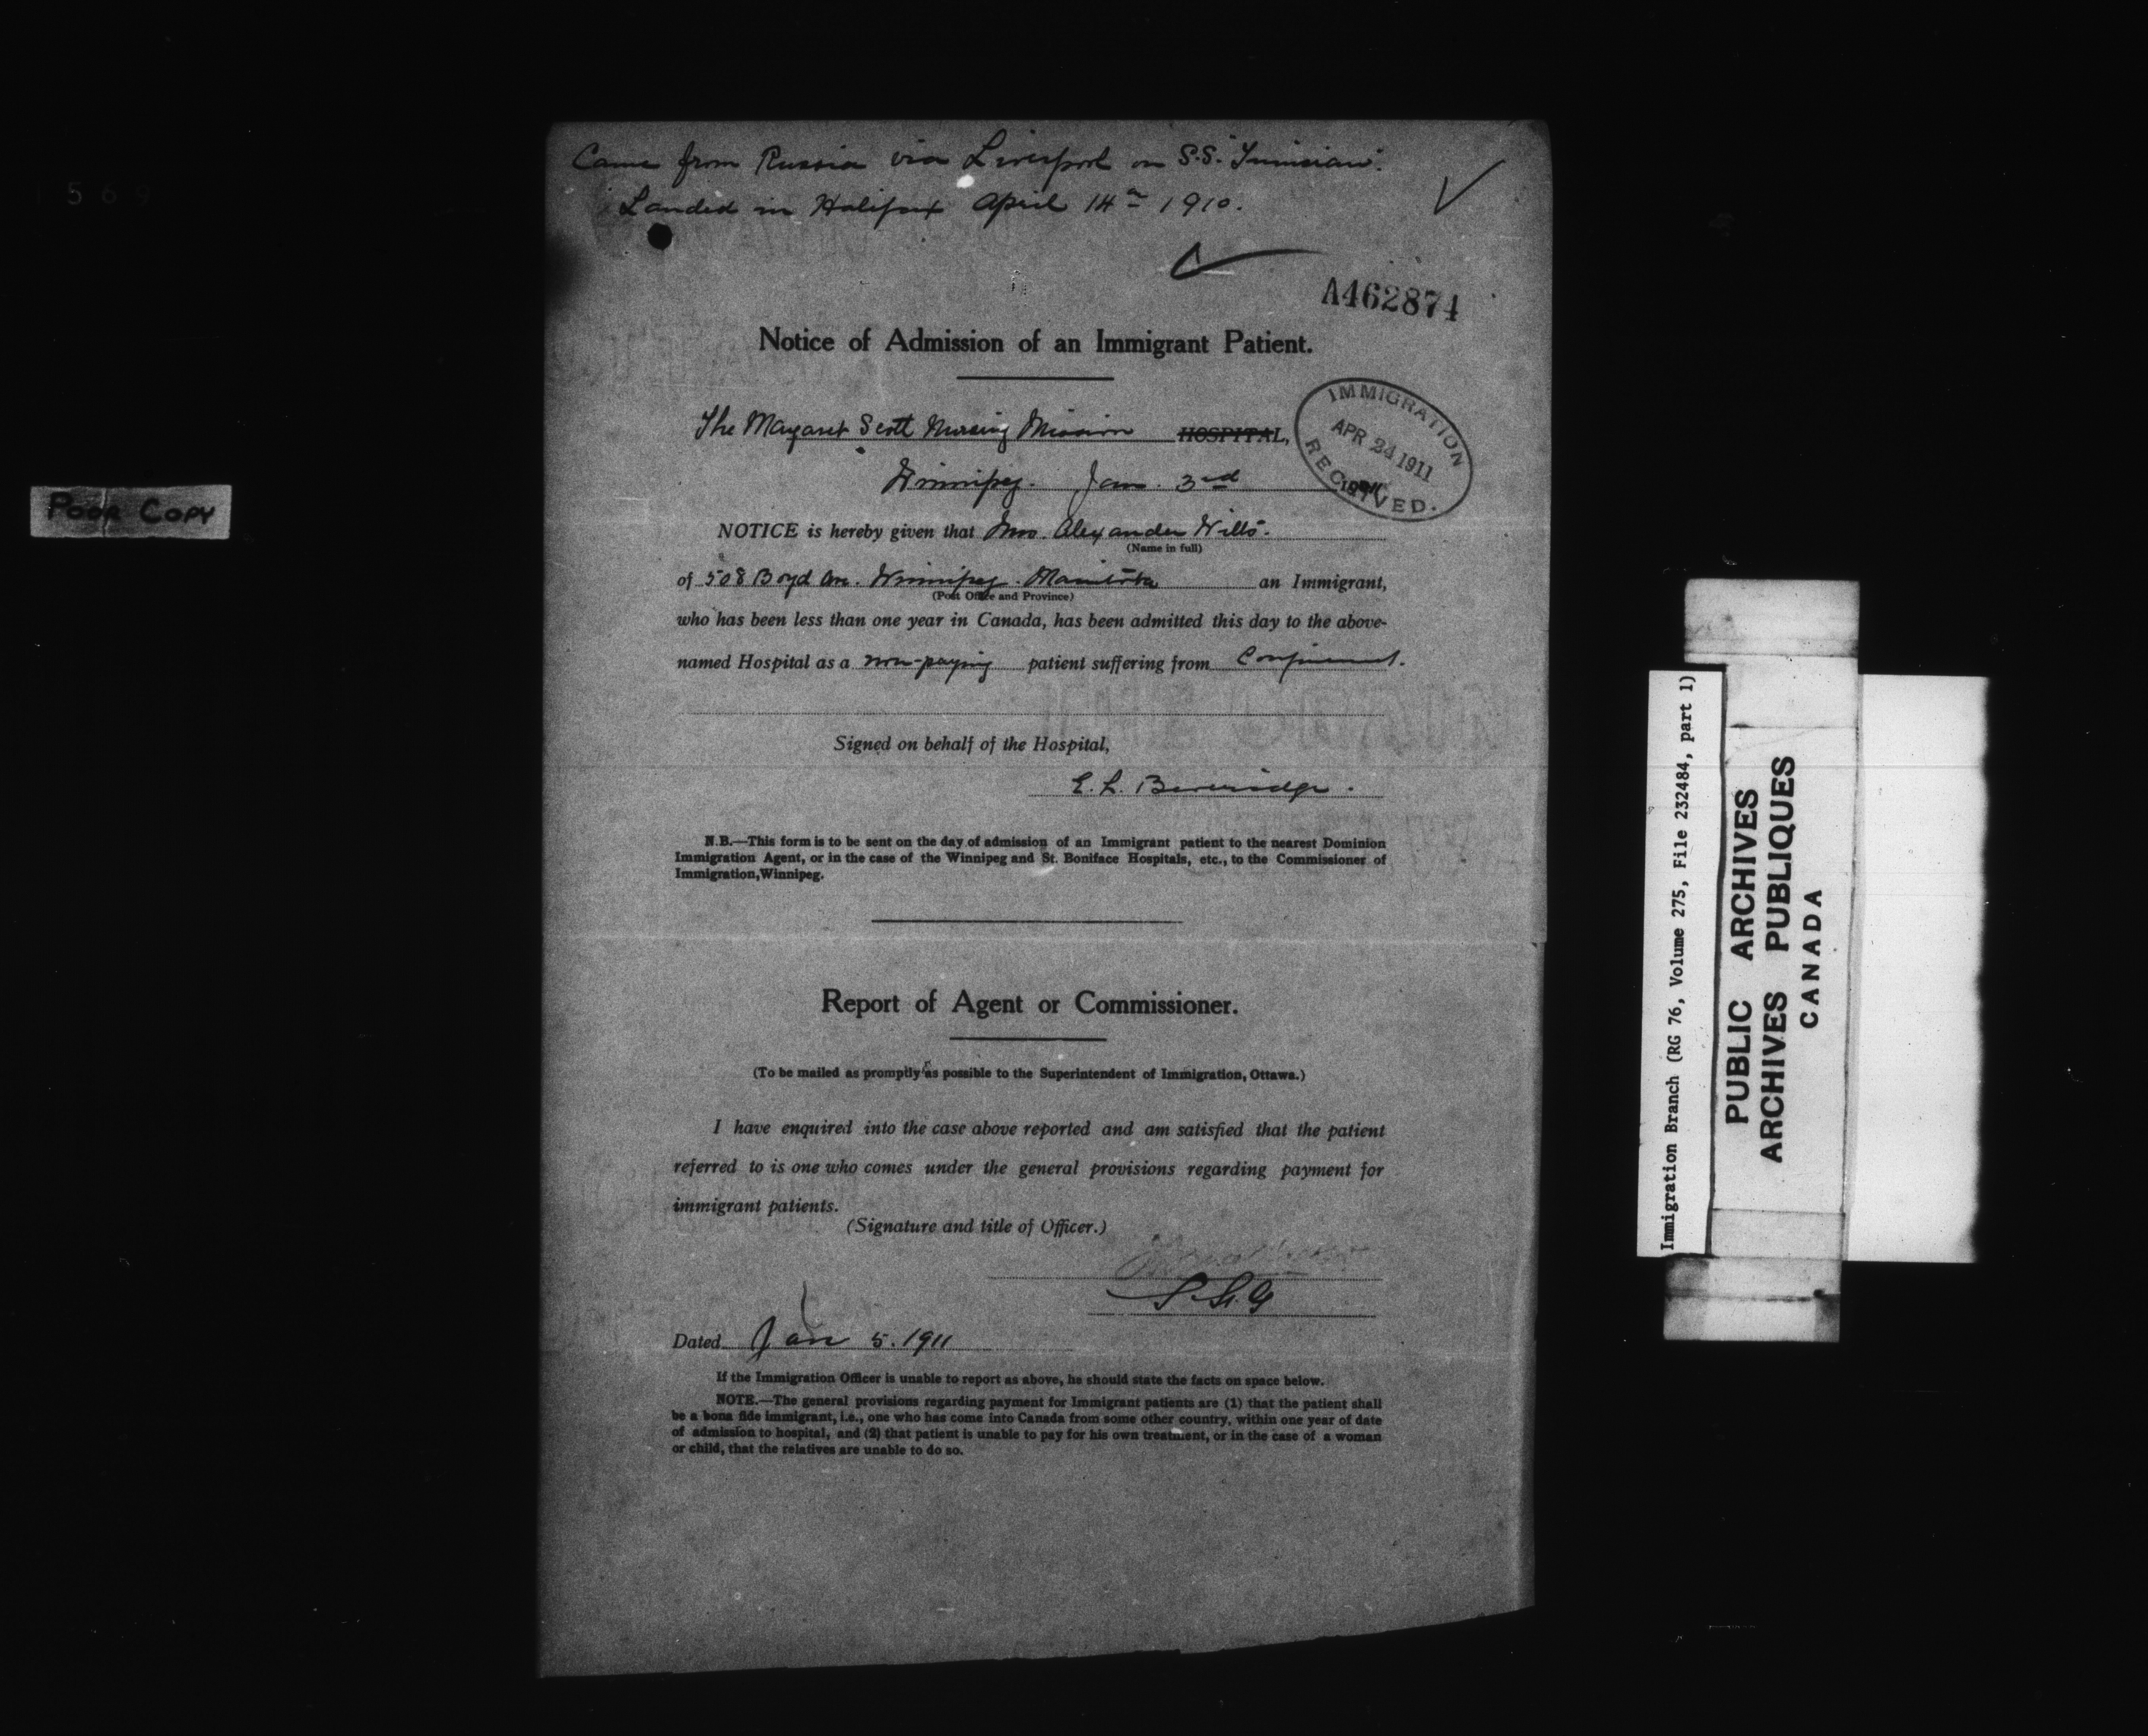 Came from Russia via Liverpool on S.S. "Tunisian".
Landed in Halifax April 14th 1910.
A462874
Notice of Admission of an Immigrant Patient.
The Margaret Scott Nursing Mission HOSPITAL,
IMMIGRATION
APR 24 1911
RECEIVED.
Winnipeg. Jan. 3rd
NOTICE is hereby given that Mrs. Alexander Wills.
(Name in full)
of 508 Boyd Ave. Winnipeg. Manitoba an Immigrant,
(Post Office and Province)
who has been less than one year in Canada, has been admitted this day to the above-
named Hospital as a non-paying patient suffering from Confinement.
Signed on behalf of the Hospital,
E. L. Beveridge.
N.B.—This form is to be sent on the day of admission of an Immigrant patient to the nearest Dominion
Immigration Agent, or in the case of the Winnipeg and St. Boniface Hospitals, etc., to the Commissioner of
Immigration, Winnipeg.
Report of Agent or Commissioner.
(To be mailed as promptly as possible to the Superintendent of Immigration, Ottawa.)
I have enquired into the case above reported and am satisfied that the patient
referred to is one who comes under the general provisions regarding payment for
immigrant patients.
(Signature and title of Officer.)
Dated Jan 5. 1911
If the Immigration Officer is unable to report as above, he should state the facts on space below.
NOTE.—The general provisions regarding payment for Immigrant patients are (1) that the patient shall
be a bona fide immigrant, i.e., one who has come into Canada from some other country, within one year of date
of admission to hospital, and (2) that patient is unable to pay for his own treatment, or in the case of a woman
or child, that the relatives are unable to do so.
POOR COPY
Immigration Branch (RG 76, Volume 275, File 232484, part 1)
PUBLIC ARCHIVES
ARCHIVES PUBLIQUES
CANADA